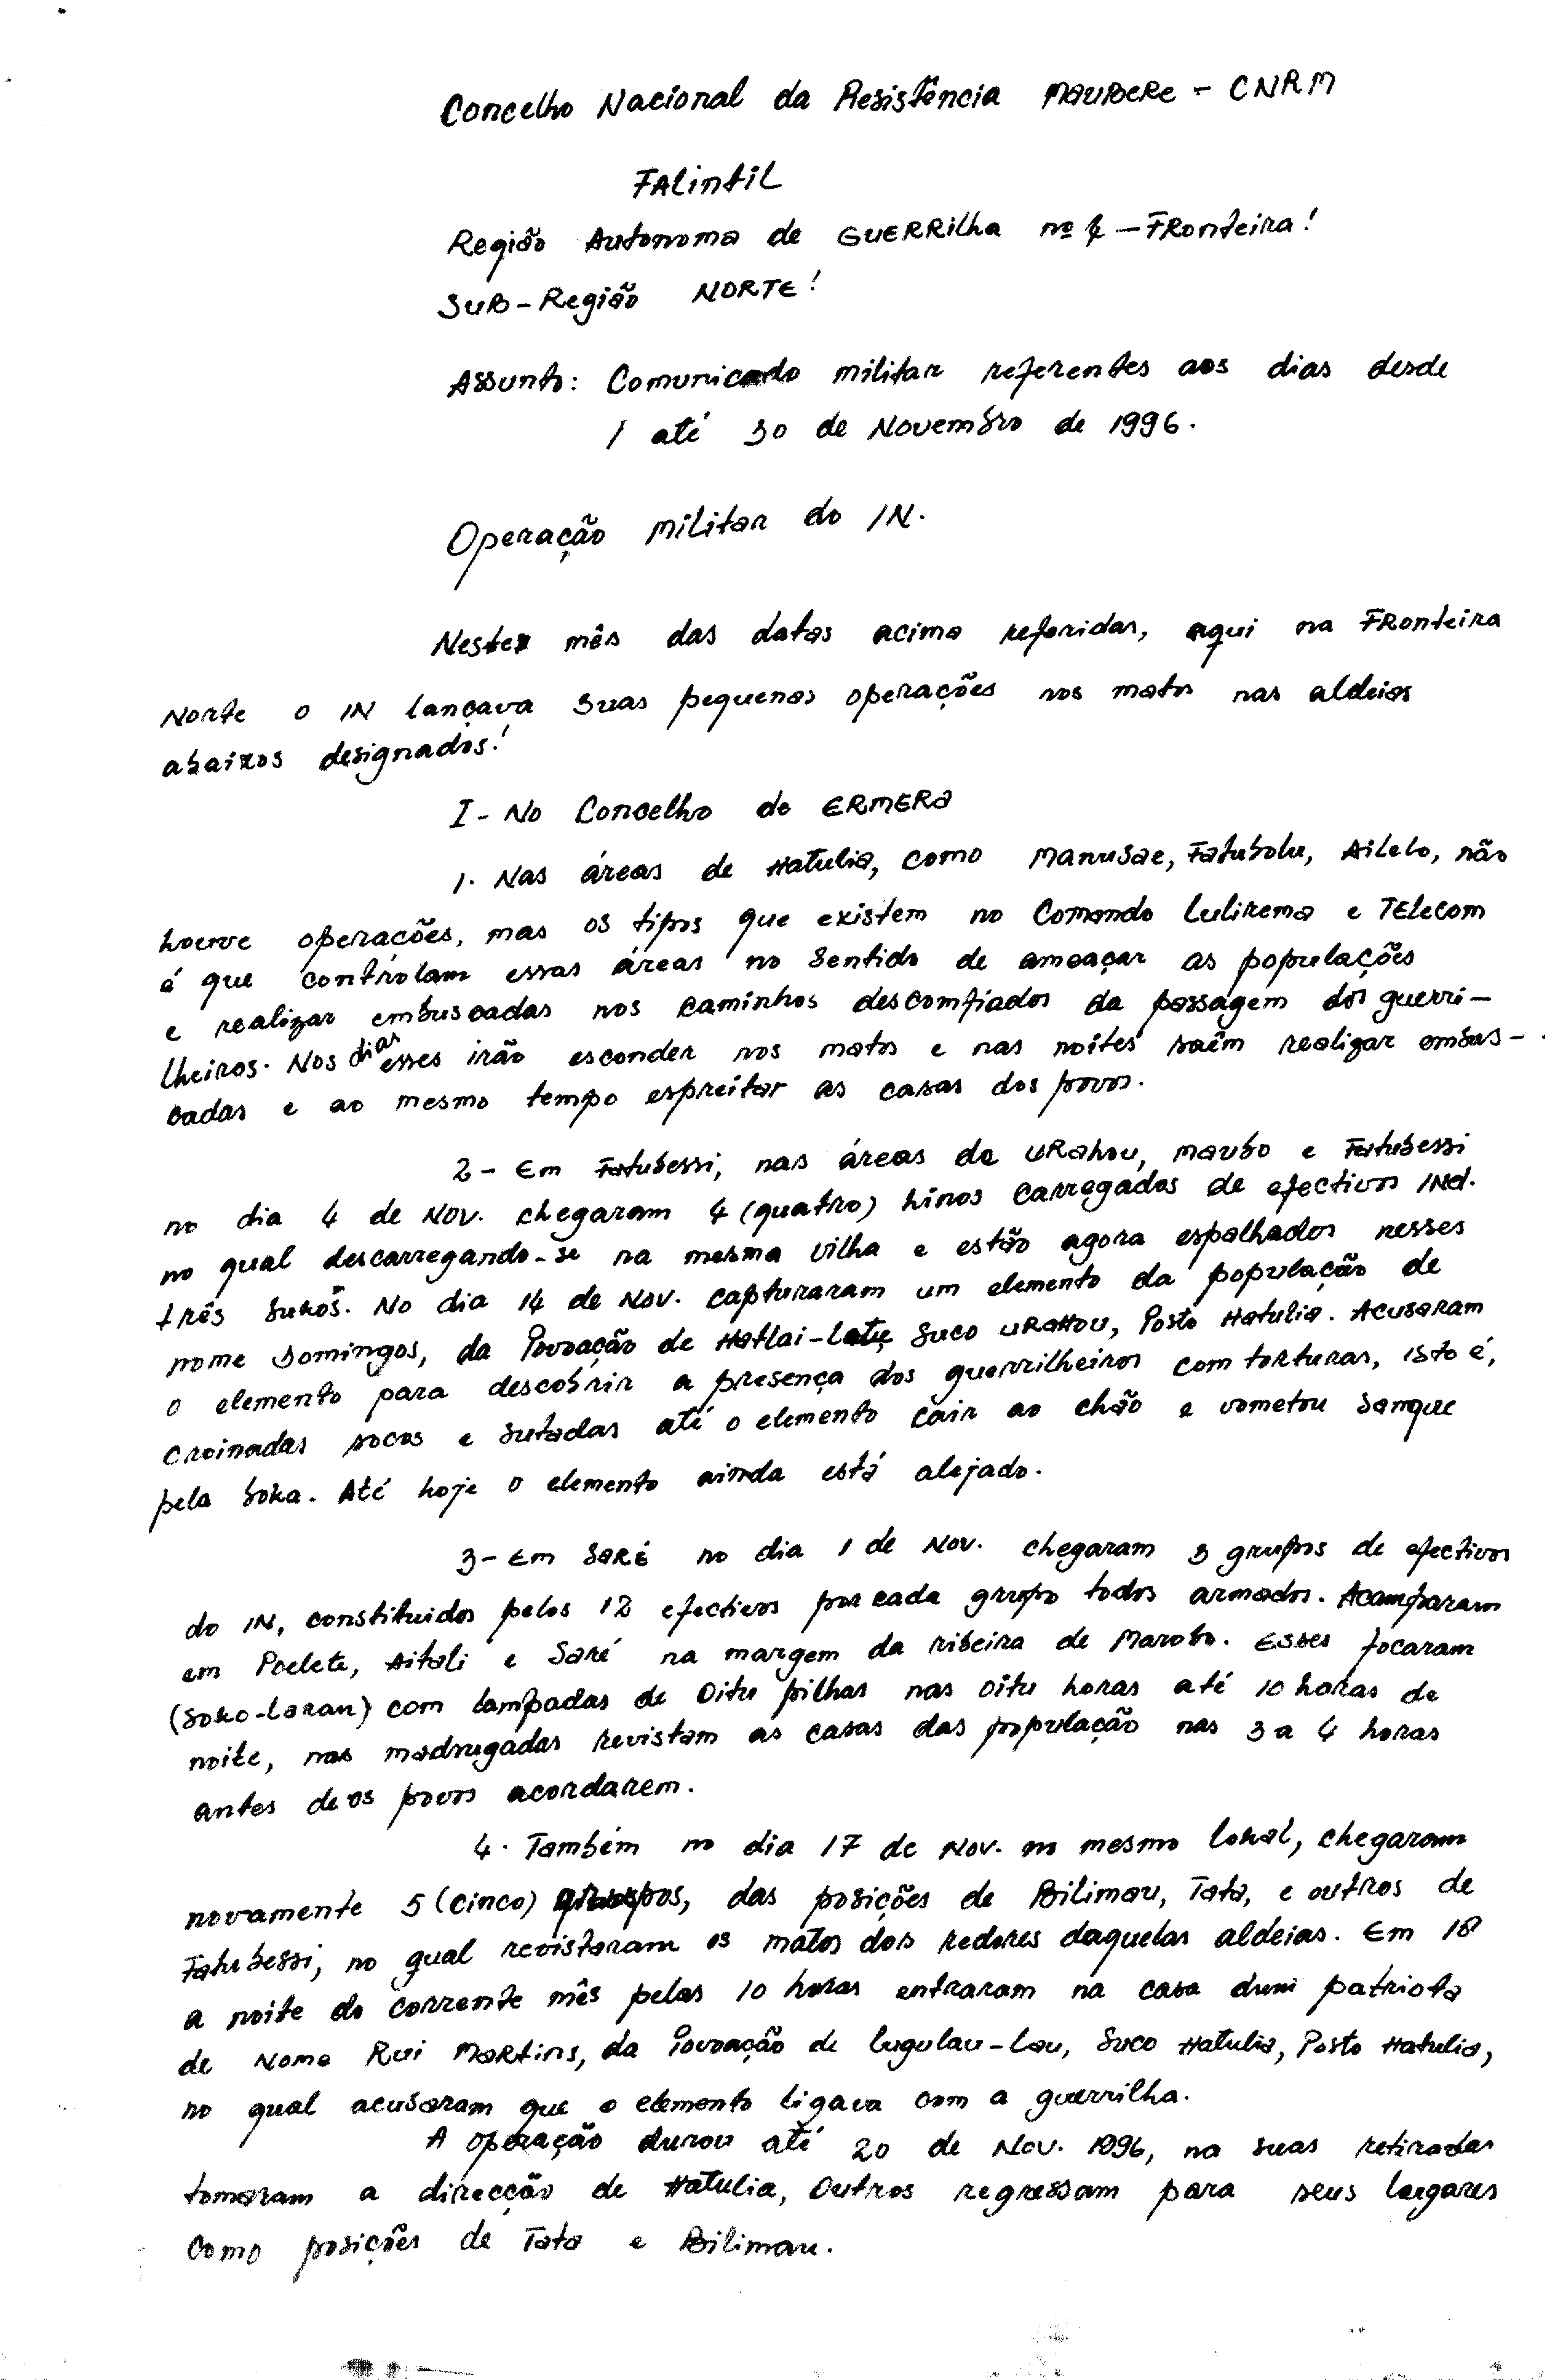 Concelho Nacional da Resistência MAUBERE - CNRM
FALintiL
Região Autonoma de GUERRilha nº 4 - FRonteira!
SUB-Região NORTE!
Assunto: Comunicado militar referentes aos dias desde
1 até 30 de Novembro de 1996.
Operação militar do IN.
Neste mês das datas acima referidas, aqui na FRonteira
Norte o IN lançava suas pequenas operações nos matos nas aldeias
abaixos designados!
I - No Concelho de ERMERA
1. Nas áreas de Hatulia, como Manusae, Fatubolu, Ailelo, não
houve operações, mas os tipos que existem no Comando Lulirema e TElecom
é que controlam essas áreas no sentido de ameaçar as populações
e realizar embuscadas nos caminhos descomfiados da passagem dos guerri-
lheiros. Nos dias esses irão esconder nos matos e nas noites saêm realizar embus-
cadas e ao mesmo tempo espreitar as casas dos povos.
2 - Em Fatubessi, nas áreas de URahou, maubo e Fatubessi
no dia 4 de Nov. chegaram 4 (quatro) hinos carregados de efectivos INd.
no qual descarregando-se na mesma vilha e estão agora espalhados nesses
três sukos. No dia 14 de Nov. capturaram um elemento da população de
nome Domingos, da Povoação de Hatlai-Late Suco URaHou, Posto Hatulia. Acusaram
o elemento para descobrir a presença dos guerrilheiros com torturas, isto é,
croinadas socos e butadas até o elemento cair ao chão e vometou sangue
pela boka. Até hoje o elemento ainda está alejado.
3 - Em SaRé no dia 1 de Nov. chegaram 3 grupos de efectivos
do IN, constituidos pelos 12 efectivos por cada grupo todos armados. Acamparam
em Poelete, Aitali e Saré na margem da ribeira de Marobo. Esses focaram
(Soko-laran) com lampadas de Oitu pilhas nas oitu horas até 10 horas de
noite, nas madrugadas revistam as casas das população nas 3 a 4 horas
antes de os povos acordarem.
4. Também no dia 17 de Nov. no mesmo lokal, chegaram
novamente 5 (cinco) grupos, das posições de Bilimau, Tata, e outros de
Fatubessi, no qual revistaram os matos dos redores daquelas aldeias. Em 18
a noite do corrente mês pelas 10 horas entraram na casa dum patriota
de Nome Rui Martins, da Povoação de Lugulau-Lau, Suco Hatulia, Posto Hatulia,
no qual acusaram que o elemento ligava com a guerrilha.
A operação durou até 20 de Nov. 1996, na suas retiradas
tomaram a direcção de Hatulia, Outros regressam para seus lugares
como posições de Tata e Bilimau.